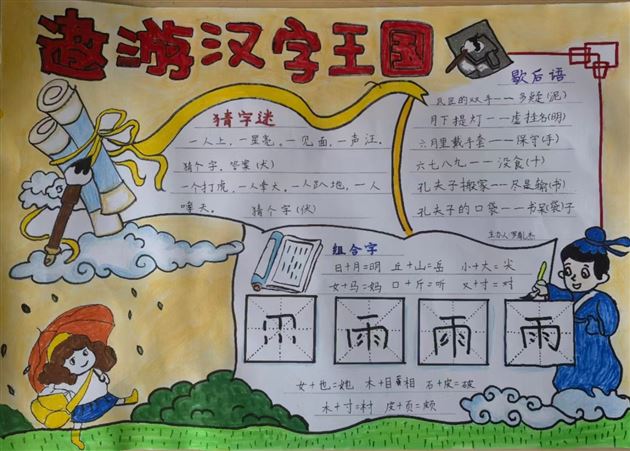 遨游汉字王国
猜字迷
一人上,一里亮,一见面,一声汪,
猜个字,答案(伏)
一个打虎,一人拿大,一人趴地,一人
哮天。 猜个字(伏)
歇后语
农民的双手——多疑(泥)
月下提灯——虚挂名(明)
六月里戴手套——保守(手)
六七八九——没食(十)
孔夫子搬家——尽是输(书)
孔夫子的口袋——书呆(袋)子
主办人:
组合字
日+月=明 丘+山=岳 小+大=尖
女+马=妈 口+斤=听 又+寸=对
雨 雨 雨
女+也=她 木+目=相 石+皮=破
木+寸=村 皮+页=颇